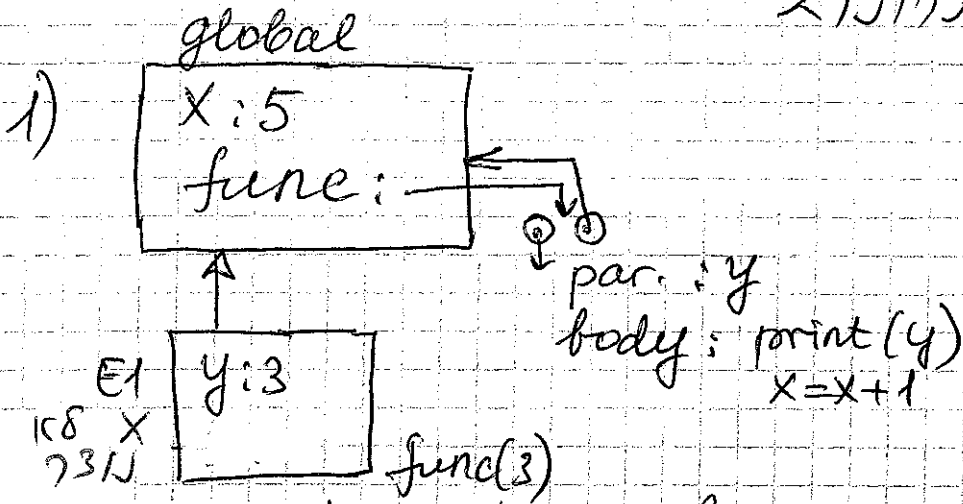 global
1)
X : 5
func :
par. : y
body : print(y)
x = x + 1
E1
y : 3
לא X
func(3)